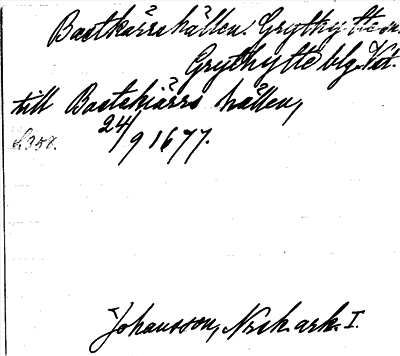 Bastkärrshällen. Grythytte sn.
Grythytte blg. Vstm.
till Bastakiärrs hållen,
24/9 1677.
s. 358.
Johansson, Nrsk. ark. I.